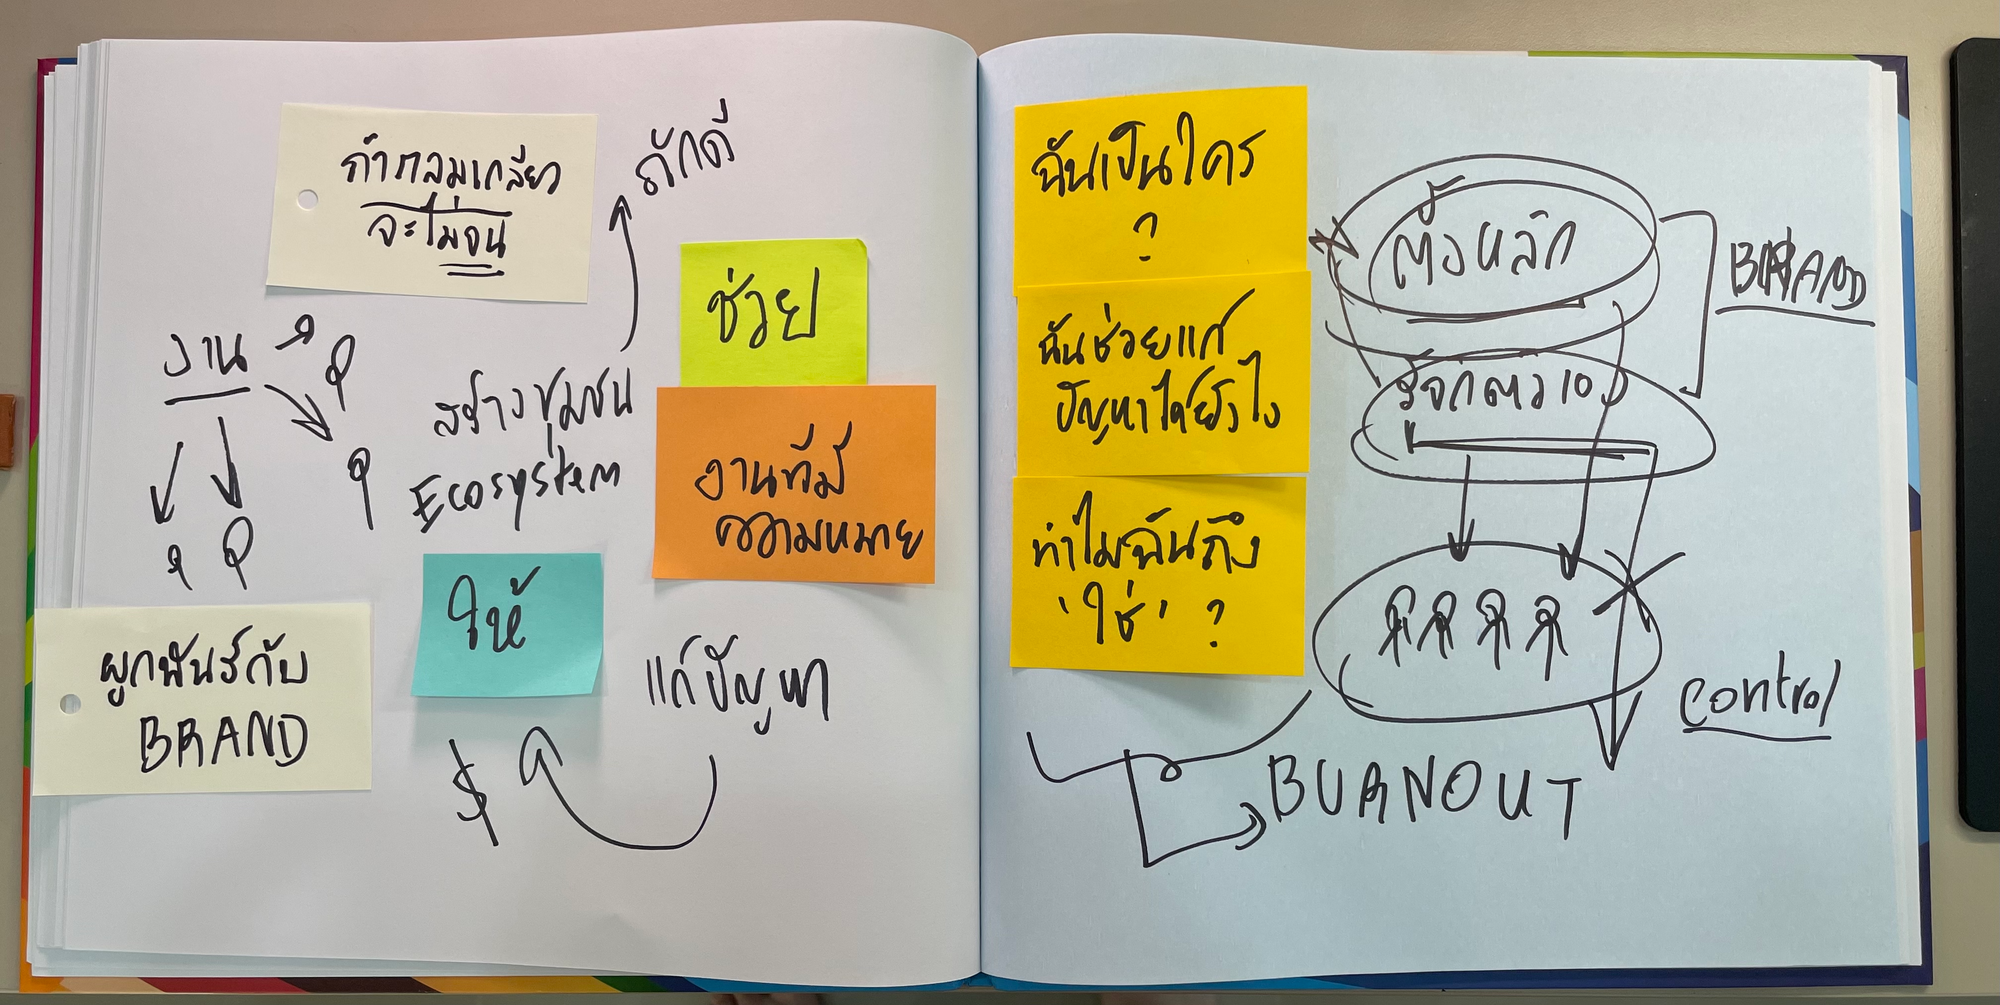 ถ้ากลมเกลียว
จะไม่จน
ภักดี
ช่วย
งาน
สร้างชุมชน
Ecosystem
งานที่มี
ความหมาย
ให้
ผูกพันธ์กับ
BRAND
แก้ปัญหา
$
ฉันเป็นใคร
?
ฉันช่วยแก้
ปัญหาได้ยังไง
ทำไมฉันถึง
'ใช่' ?
ตั้งหลัก
BRAND
รู้จักตัวเอง
control
BURNOUT